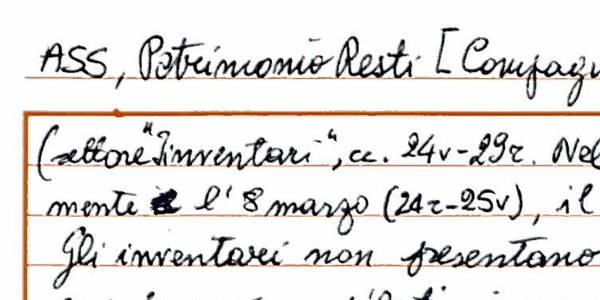 ASS, Patrimonio Resti [Compagn
(settore "Inventari", cc. 24v-29r. Nel
mente l' 8 marzo (24r-25v), il
Gli inventari non presentano